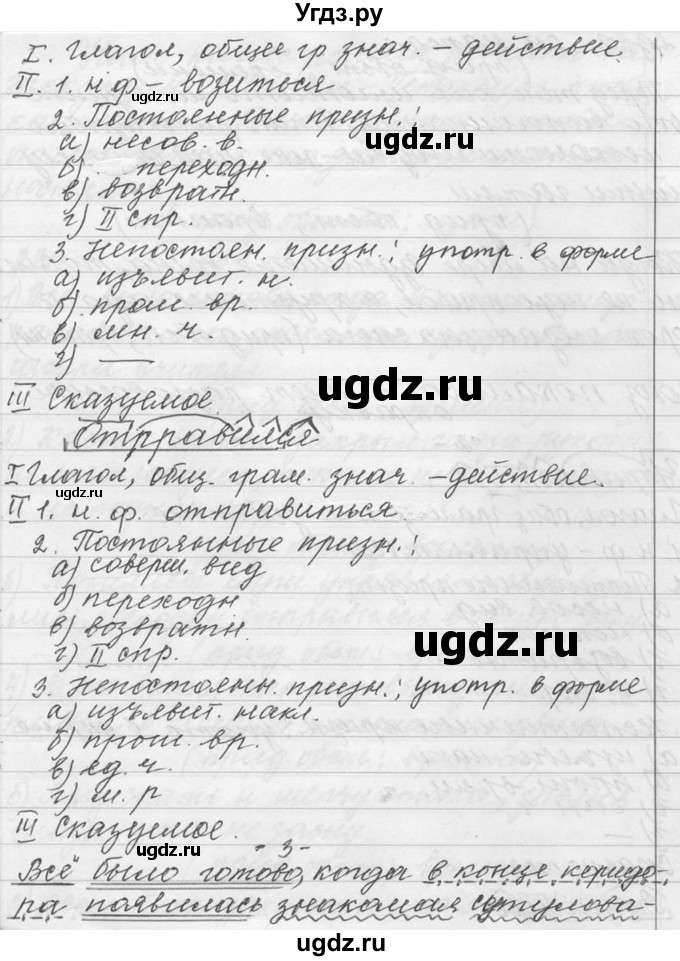 Угдз.ру
I. Глагол, общее гр знач. – действие.
II. 1. н ф – возиться
2. Постоянные призн.:
а) несов. в.
б) переходн.
в) возвратн.
г) II спр.
3. Непостоян. призн.: употр. в форме
а) изъявит. н.
б) прош. вр.
в) мн. ч.
г) —
III Сказуемое.
Отправился
I Глагол, общ. грам. знач. – действие.
II 1. н. ф. отправиться
2. Постоянные призн.:
а) соверш. вид
б) переходн
в) возвратн.
г) II спр.
3. Непостоянн. призн.: употр. в форме
а) изъявит. накл.
б) прош. вр.
в) ед. ч.
г) м. р
III Сказуемое.
- 3 -
Всё было готово, когда в конце коридо-
ра появилась знакомая сутулова-
ugdz.ru
ugdz.ru
ugdz.ru
ugdz.ru
ugdz.ru
ugdz.ru
ugdz.ru
ugdz.ru
ugdz.ru